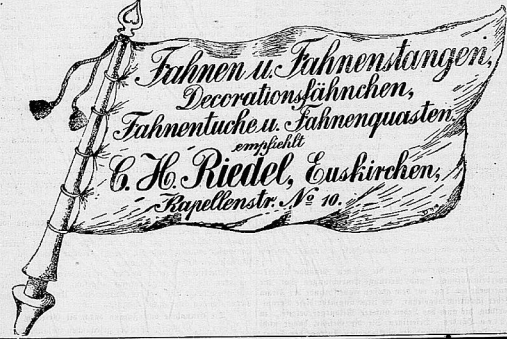 Fahnen u. Fahnenstangen,
Decorationsfähnchen,
Fahnentuche u. Fahnenquasten
empfiehlt
C. H. Riedel, Euskirchen,
Kapellenstr. No 10.